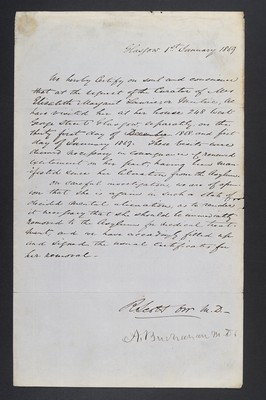 Glasgow 1st January 1859
We hereby Certify on soul and conscience
that at the request of the Curator of Mrs
Elizabeth Margaret We
have visited her at her house 248 West
George Street Glasgow separately on the
thirty first day of December 1858 and first
day of January 1859. These visits were
deemed necessary in consequence of renewed
excitement on her part having been mani-
fested since her liberation from the Asylum.
On careful investigation we are of opin-
ion that she is again in such a state of
decided mental alienation, as to render
it necessary that she should be immediately
removed to the Asylum for medical treat-
ment, and we have accordingly filled up
and signed the usual Certificates for
her removal.—
Orr M.D.
A. Buchanan M.D.